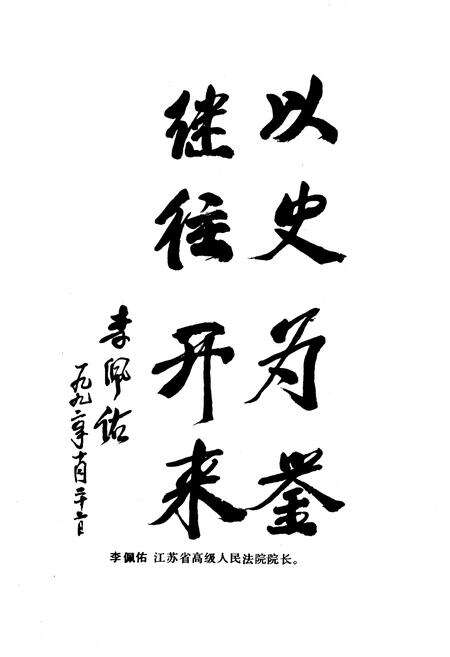 以史为鉴
继往开来
李佩佑
一九九二年十月
李佩佑 江苏省高级人民法院院长。